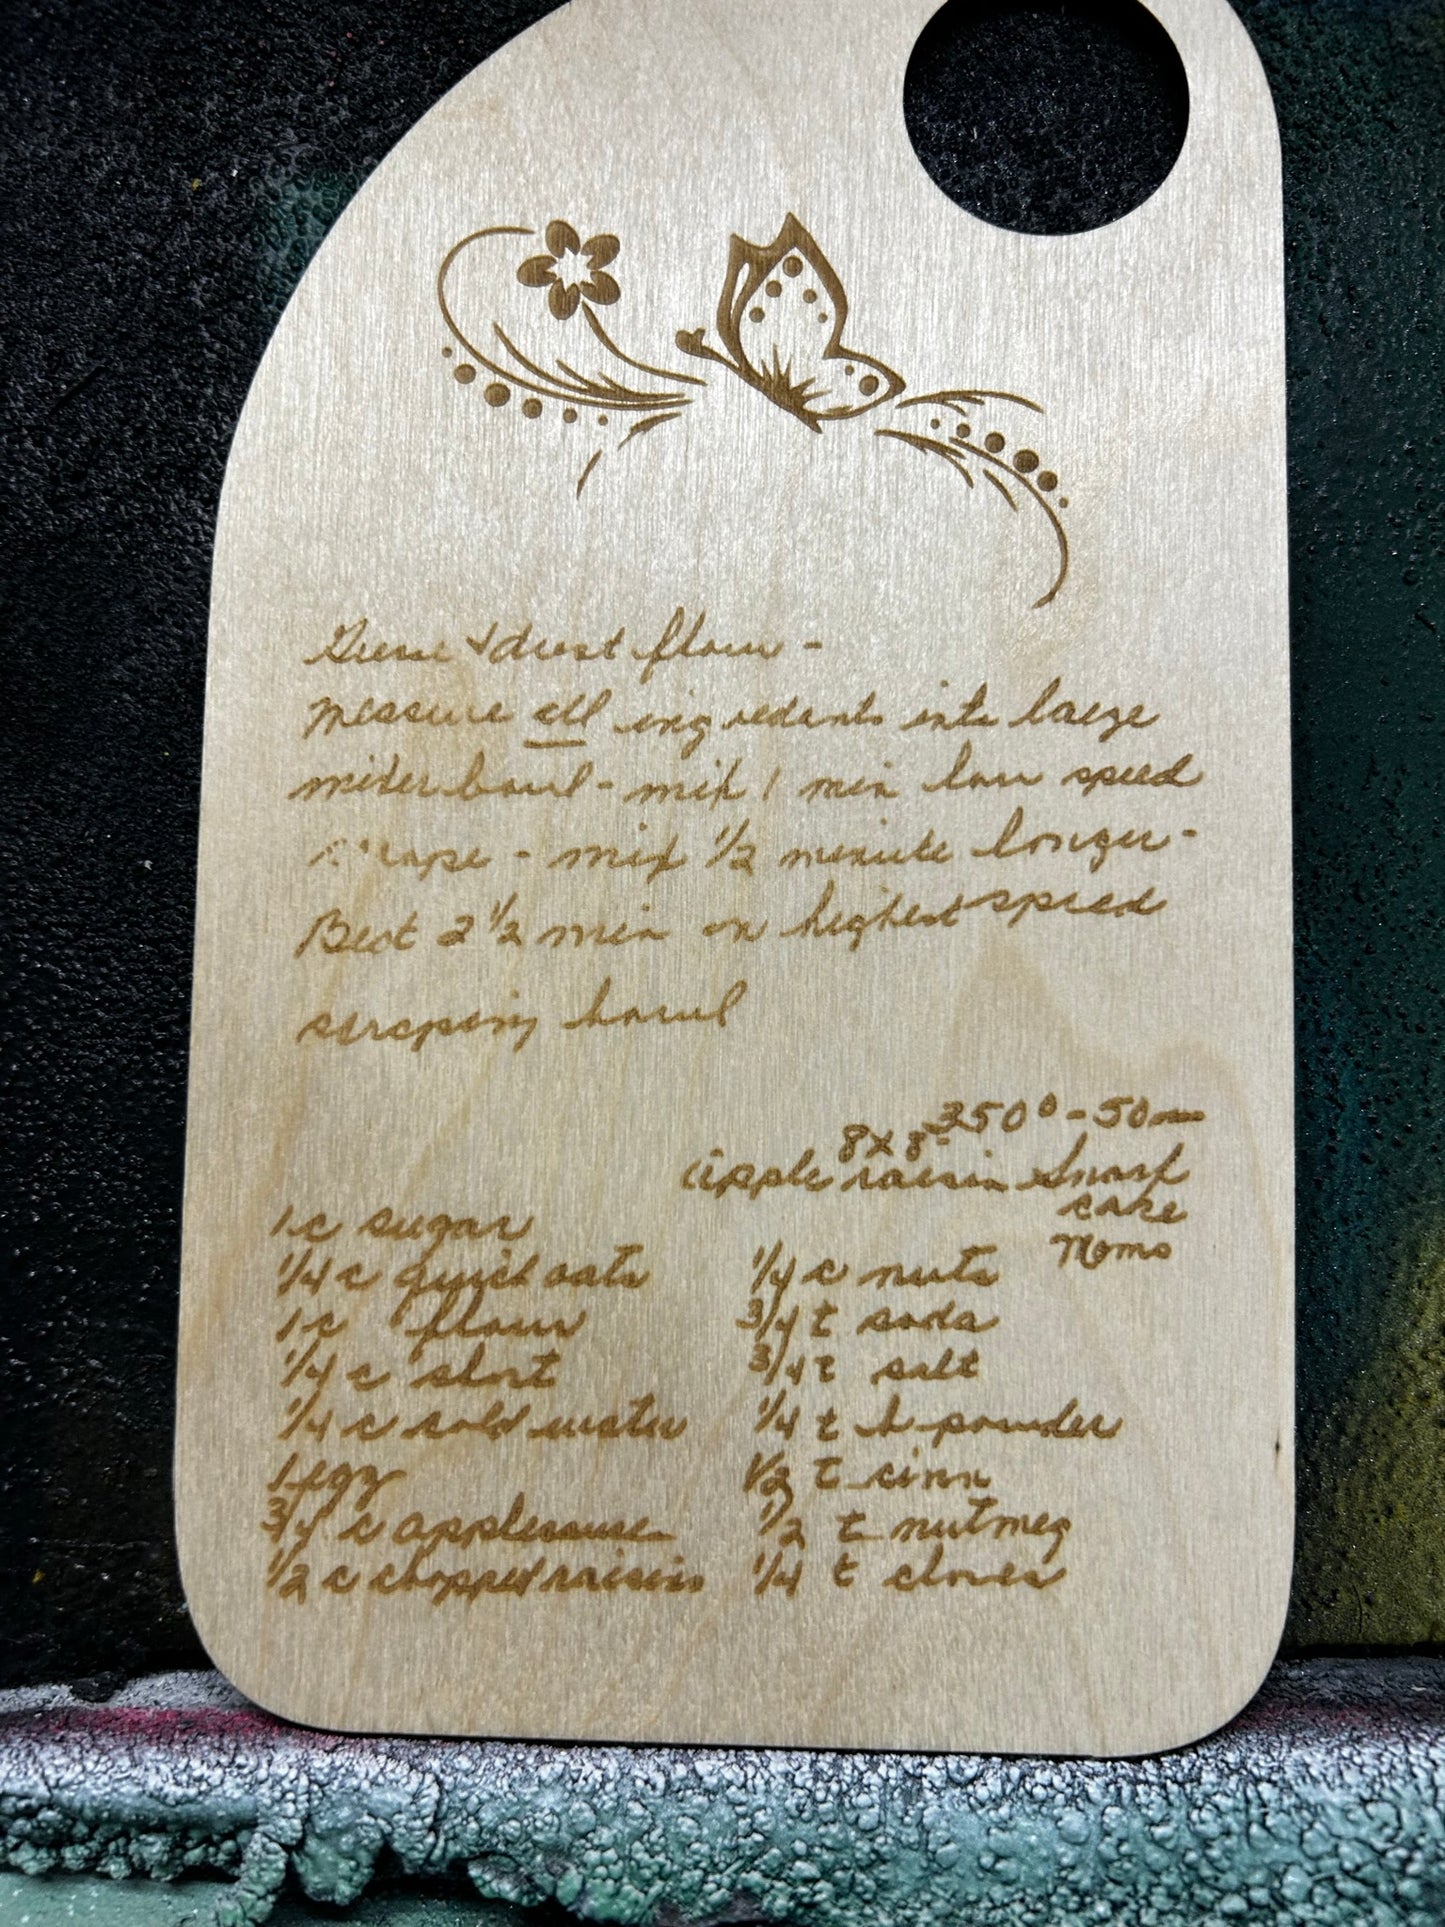 Grease & dust flour -
measure all ingredants into large
mixer bowl - mix 1 min low speed
scrape - mix 1/2 minute longer -
Beat 2 1/2 min on highest speed
scraping bowl
350° - 50 min
8x8
apple raisin Snack
cake
Moms
1 c sugar
1/4 c quick oats
1 c flour
1/4 c short
1/4 c cold water
1 egg
3/4 c applesause
1/2 c chopped raisins
1/4 c nuts
3/4 t soda
3/4 t salt
1/4 t b powder
1/2 t cinn
1/2 t nutmeg
1/4 t cloves